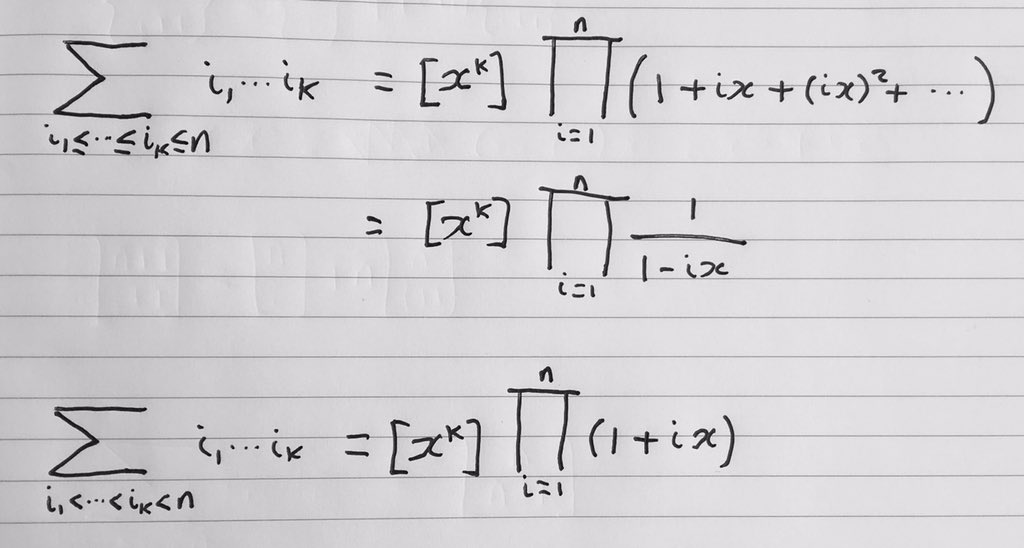 $\sum_{i_1 \le \cdots \le i_k \le n} i_1 \cdots i_k = [x^k] \prod_{i=1}^{n} (1 + ix + (ix)^2 + \cdots)$
$= [x^k] \prod_{i=1}^{n} \frac{1}{1 - ix}$
$\sum_{i_1 < \cdots < i_k < n} i_1 \cdots i_k = [x^k] \prod_{i=1}^{n} (1 + ix)$